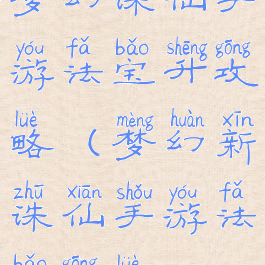 yóu fǎ bǎo shēng gōng
游法宝升攻
lüè mèng huàn xīn
略（梦幻新
zhū xiān shǒu yóu fǎ
诛仙手游法
bǎo gōng lüè